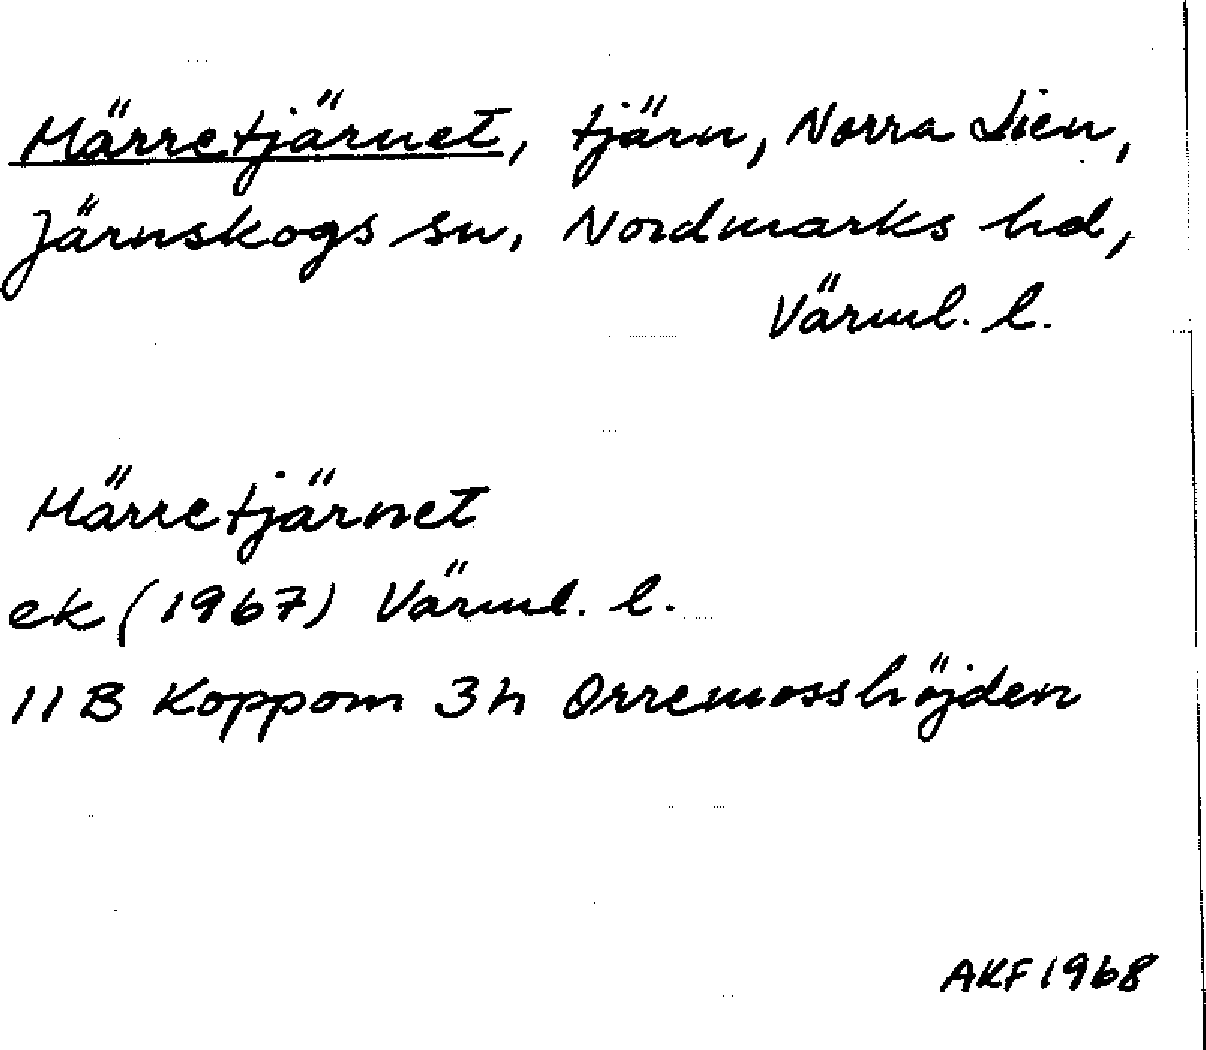 Märretjärnet, tjärn, Norra Lien,
Järnskogs sn, Nordmarks hd,
Värml. l.
Märretjärnet
ek (1967) Värml. l.
11 B Koppom 3h Orremosshöjden
AKF 1968